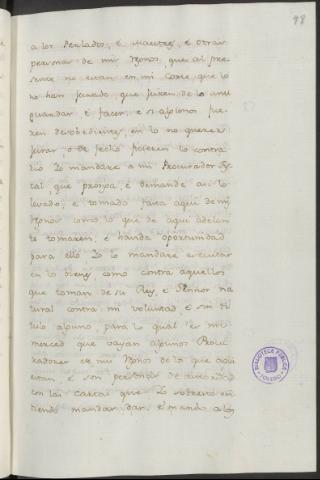 98
a los Perlados, é Maestres, é otras
personas de mis Reynos, que al pre-
sente no estan en mi Corte, que lo
no han jurado, que juren de lo ansi
guardar é facer, é si algunos fue-
ren desobedientes, en lo no querer
jurar, o de fecho ficieren lo contra-
rio Yo mandaré a mi Procurador Fis-
cal, que prosiga, é demande asi lo
levado, é tomado fasta aqui de mis
Reynos como lo que de aqui adelan-
te tomaren, é havida oportunidad
para ello, Yo lo mandaré executar
en los bienes, como contra aquellos
que toman de su Rey, é Señor na-
tural contra mi voluntad é sin ti-
tulo alguno, para lo qual es mi
merced que vayan algunos Procu-
radores de mis Reynos de los que aqui
estan, é son personas de autoridad
con las cartas que Yo sobresto en-
tiendo mandar dar, é mando a los
BIBLIOTECA PUBLICA
TOLEDO